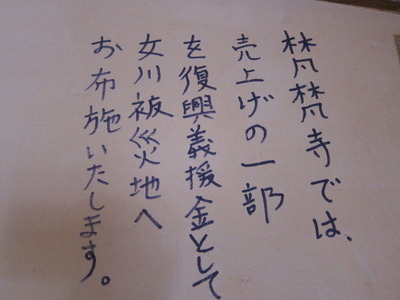 梵梵寺では、
売上げの一部
を復興義援金として
女川被災地へ
お布施いたします。